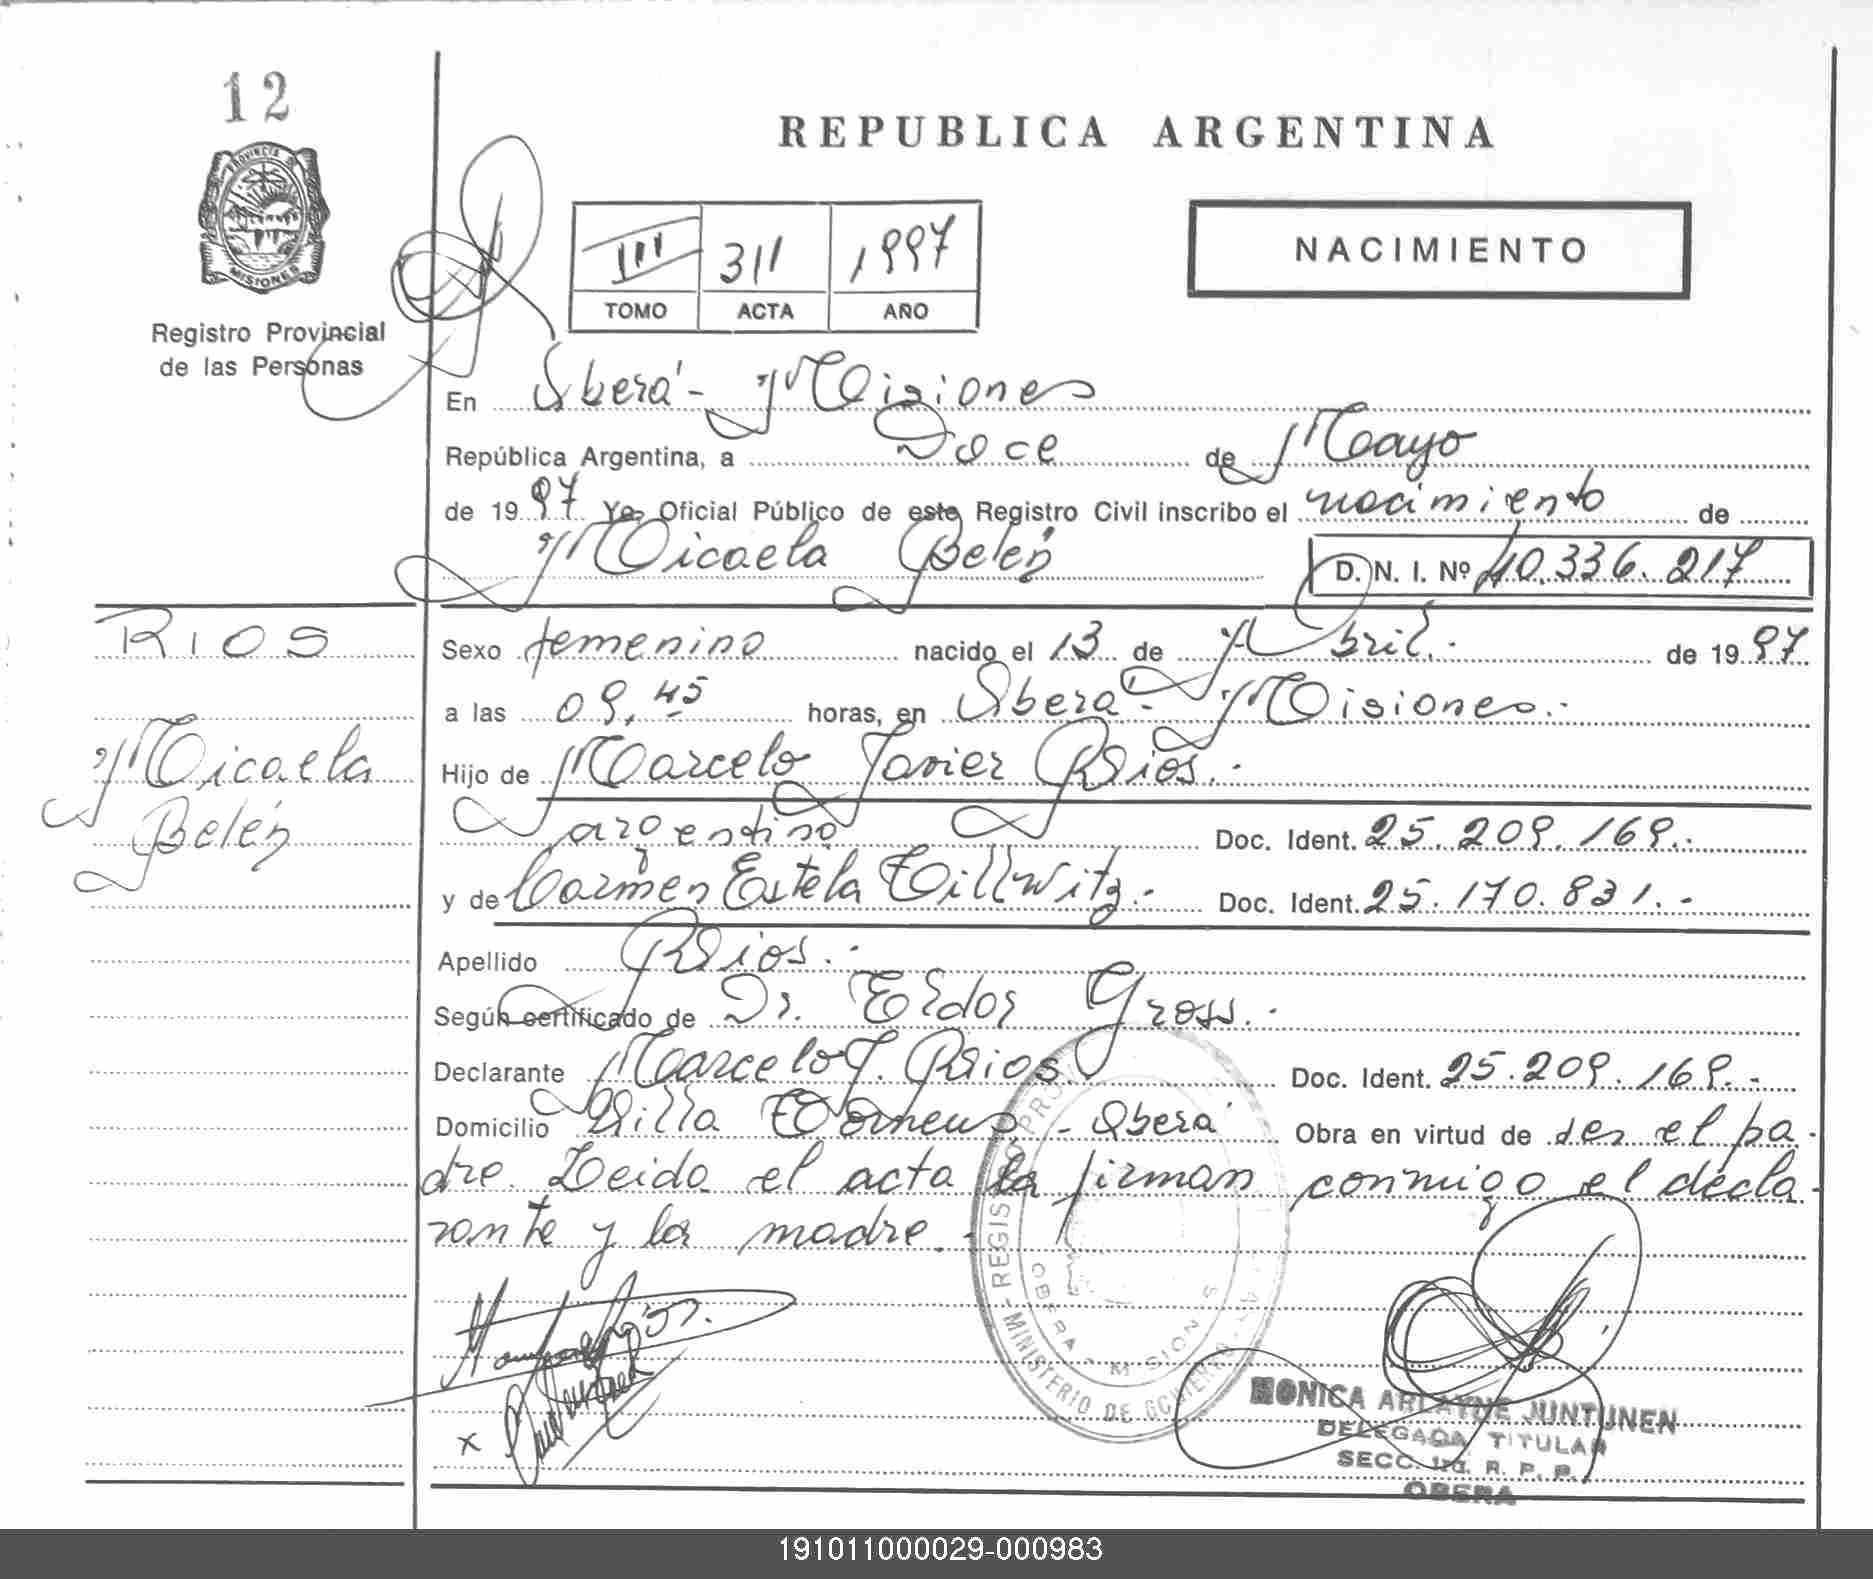 12
REPUBLICA ARGENTINA
PROVINCIA DE
MISIONES
Registro Provincial
de las Personas
III 311 1997
TOMO ACTA AÑO
NACIMIENTO
En Oberá - Misiones
República Argentina, a Doce de Mayo
de 1997 Yo, Oficial Público de este Registro Civil inscribo el nacimiento de
Micaela Belén D. N. I. Nº 40.336.217
RIOS
Micaela
Belén
Sexo femenino nacido el 13 de Abril.- de 1997
a las 09,45 horas, en Oberá - Misiones.-
Hijo de Marcelo Javier Rios.-
argentino Doc. Ident. 25.209.169.-
y de Carmen Estela Tillwitz.- Doc. Ident. 25.170.831.-
Apellido Rios.-
Según certificado de Dr. Eldor Gross.-
Declarante Marcelo J. Rios. Doc. Ident. 25.209.169.-
Domicilio Villa - Oberá Obra en virtud de ser el pa-
dre. Leida el acta la firman conmigo el decla-
rante y la madre.-
REGISTRO PROV
OBERA - MISIONES
MINISTERIO DE GOBIERNO
x
MONICA ARLAYNE JUNTUNEN
DELEGADA TITULAR
SECC. 1ra. R. P. P.
OBERA
191011000029-000983